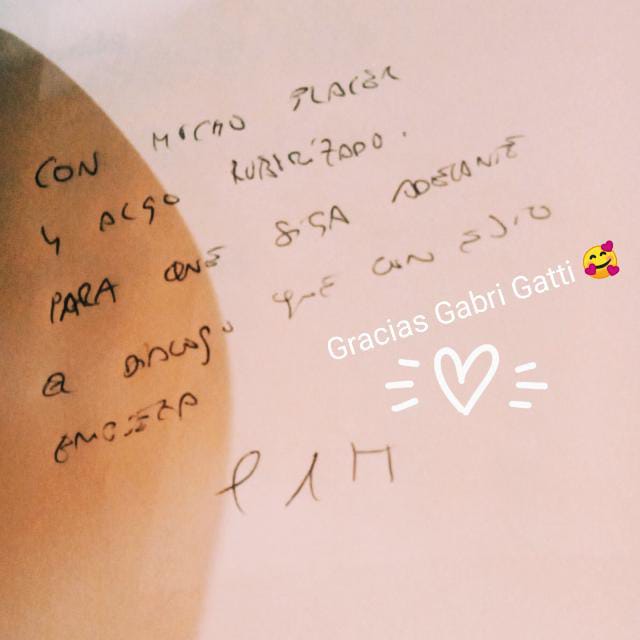 CON MUCHO PLACER
Y ALGO RUBORIZADO.
PARA QUE SIGA ADELANTE
EL DIALOGO QUE CON ESTO
EMPIEZA
Gracias Gabri Gatti 🥰